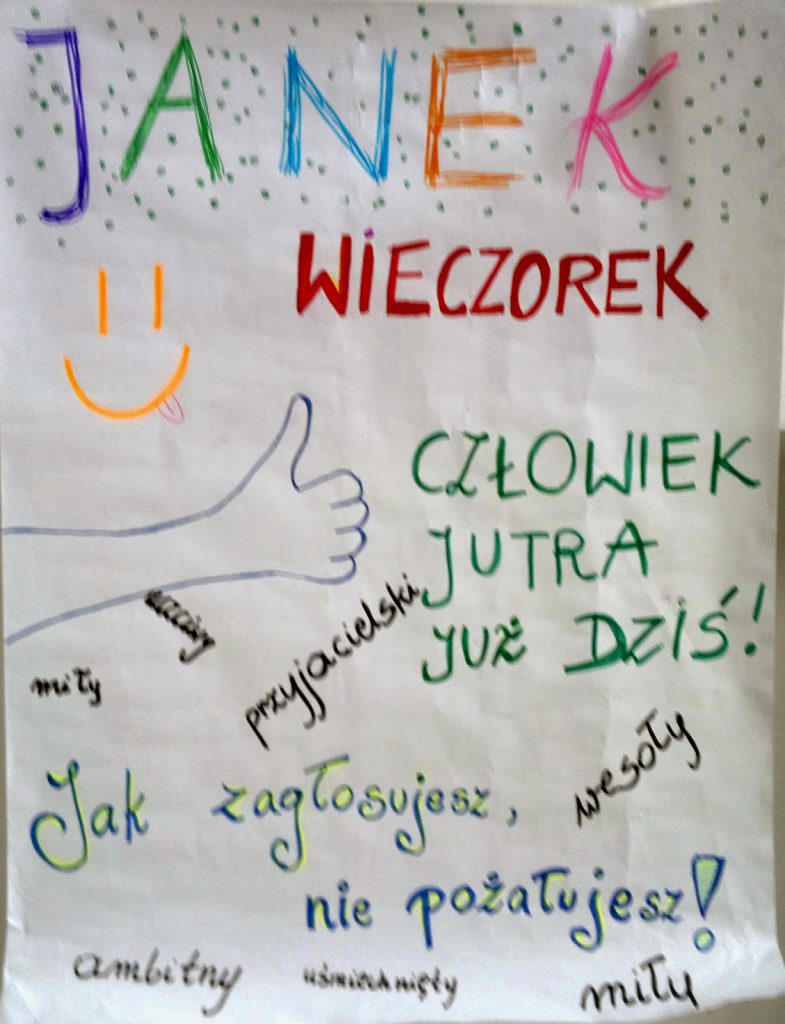 JANEK
WIECZOREK
CZŁOWIEK
JUTRA
JUŻ DZIŚ!
uczciwy
przyjacielski
miły
wesoły
Jak zagłosujesz,
nie pożałujesz!
ambitny
uśmiechnięty
miły